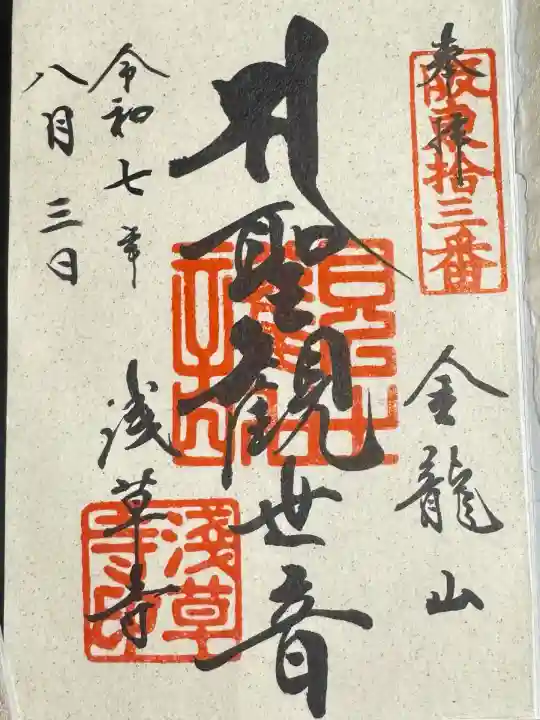 奉拝
坂東拾三番
金龍山
聖観世音
浅草寺
令和七年
八月三日